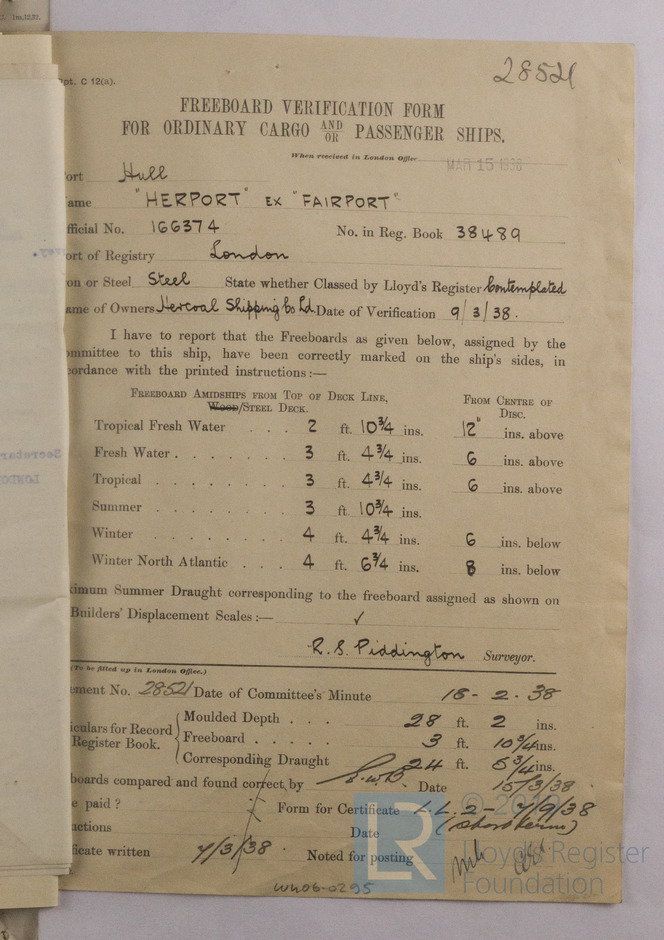 Rpt. C 12(a).
28521
FREEBOARD VERIFICATION FORM
FOR ORDINARY CARGO AND/OR PASSENGER SHIPS.
When received in London Office MAR 15 1938
ort Hull
ame "HERPORT" EX "FAIRPORT"
fficial No. 166374 No. in Reg. Book 38489
ort of Registry London
on or Steel Steel State whether Classed by Lloyd's Register Contemplated
ame of Owners Hercoal Shipping Co Ld. Date of Verification 9/3/38.
I have to report that the Freeboards as given below, assigned by the
ommittee to this ship, have been correctly marked on the ship's sides, in
cordance with the printed instructions:—
FREEBOARD AMIDSHIPS FROM TOP OF DECK LINE, FROM CENTRE OF
WOOD/STEEL DECK. DISC.
Tropical Fresh Water . . . 2 ft. 10¾ ins. 12" ins. above
Fresh Water . . . . . . . 3 ft. 4¾ ins. 6 ins. above
Tropical . . . . . . . . 3 ft. 4¾ ins. 6 ins. above
Summer . . . . . . . . 3 ft. 10¾ ins.
Winter . . . . . . . . 4 ft. 4¾ ins. 6 ins. below
Winter North Atlantic . . . 4 ft. 6¾ ins. 8 ins. below
ximum Summer Draught corresponding to the freeboard assigned as shown on
Builders' Displacement Scales:— ✓
R. S. Piddington Surveyor.
(To be filled up in London Office.)
ment No. 28521 Date of Committee's Minute 18-2-38
iculars for Record
Register Book.
Moulded Depth . . . 28 ft. 2 ins.
Freeboard . . . . . 3 ft. 10¾ ins.
Corresponding Draught 24 ft. 5¾ ins.
boards compared and found correct by Date 15/3/38
e paid ? Form for Certificate L.L.2- 7/9/38
uctions Date (short term)
ficate written 7/3/38. Noted for posting
WK06-0295
© 20
LR
Lloyd's Register
Foundation